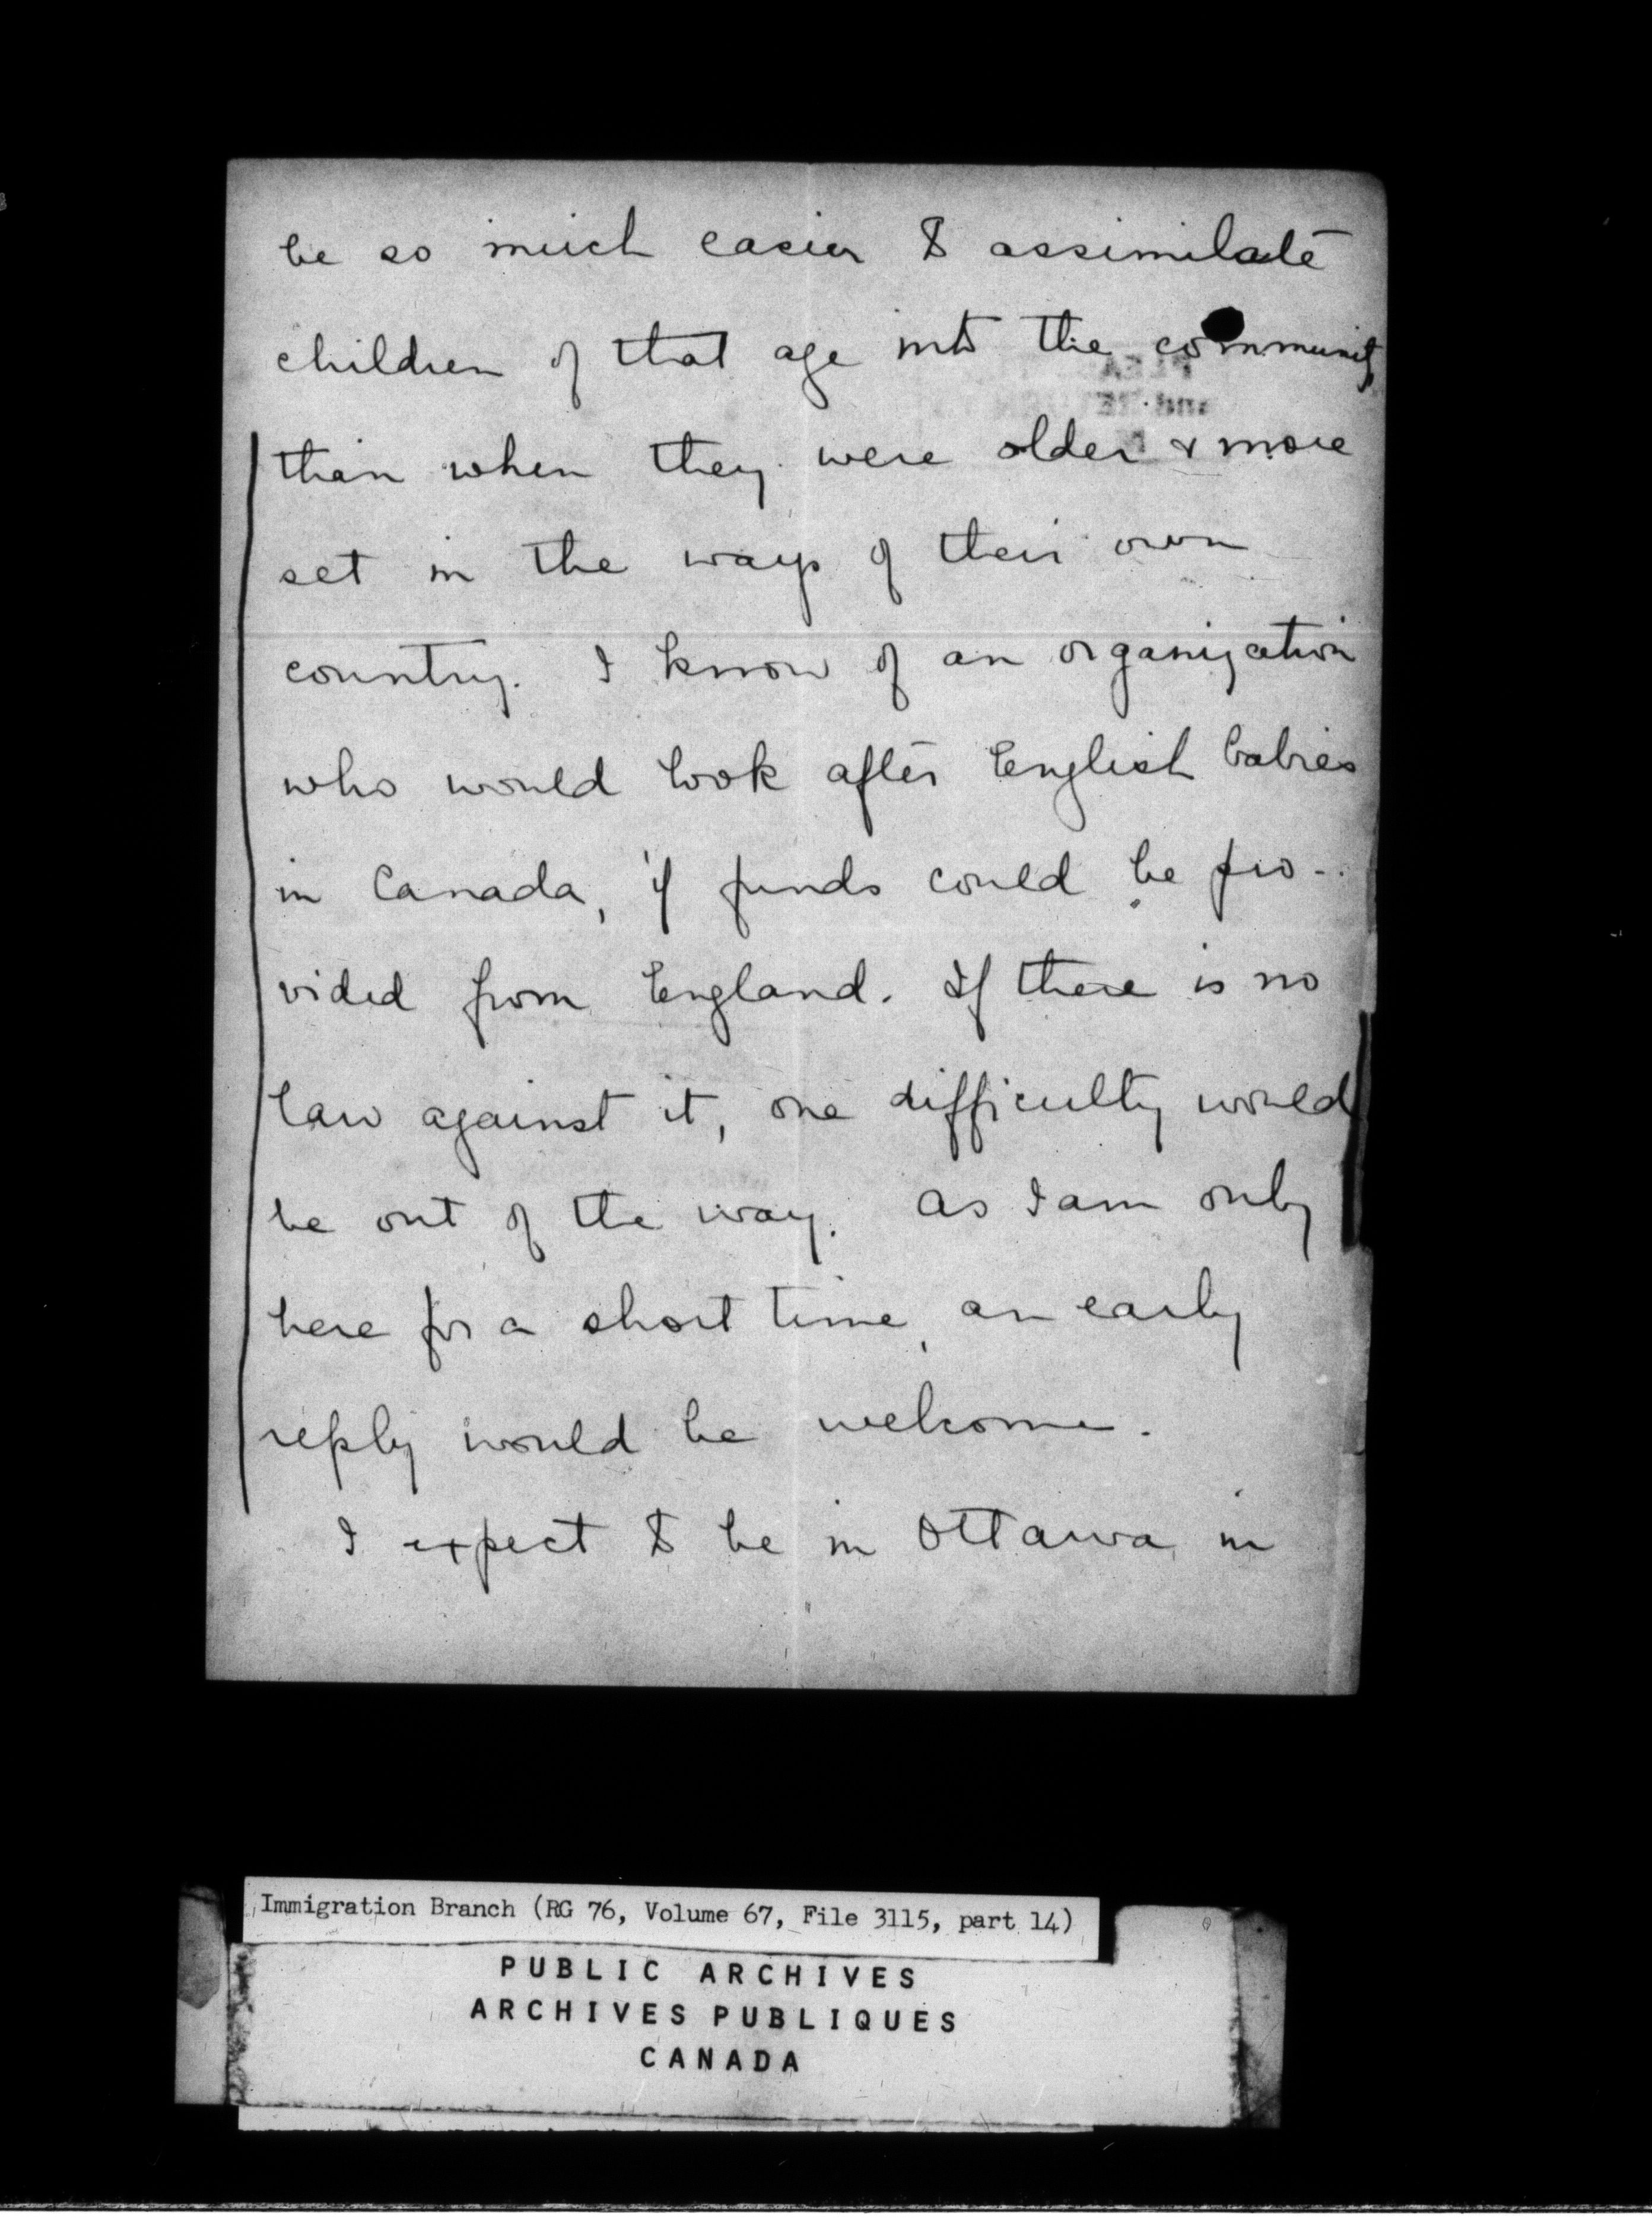 be so much easier to assimilate
children of that age into the community
than when they were older & more
set in the ways of their own
country. I know of an organization
who would look after English babies
in Canada, if funds could be pro-
vided from England. If there is no
law against it, one difficulty would
be out of the way. As I am only
here for a short time, an early
reply would be welcome.
I expect to be in Ottawa in
Immigration Branch (RG 76, Volume 67, File 3115, part 14)
PUBLIC ARCHIVES
ARCHIVES PUBLIQUES
CANADA